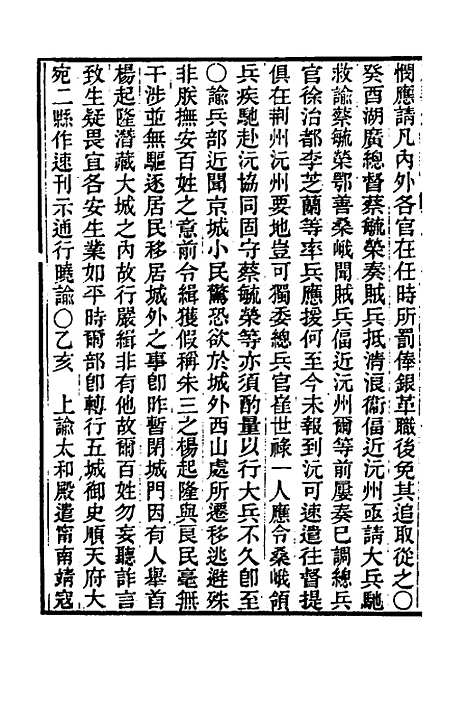 憫應請凡內外各官在任時所罰俸銀革職後免其追取從之〇
癸酉湖廣總督蔡毓榮奏賊兵抵清浪衞偪近沅州亟請大兵馳
救諭蔡毓榮鄂善桑峨聞賊兵偪近沅州爾等前屢奏已調總兵
官徐治都李芝蘭等率兵應援何至今未報到沅可速遣往督提
俱在荆州沅州要地豈可獨委總兵官崔世祿一人應令桑峨領
兵疾馳赴沅協同固守蔡毓榮等亦須酌量以行大兵不久卽至
〇諭兵部近聞京城小民驚恐欲於城外西山處所遷移逃避殊
非朕撫安百姓之意前令緝獲假稱朱三之楊起隆與良民毫無
干涉並無驅逐居民移居城外之事卽昨暫閉城門因有人舉首
楊起隆潛藏大城之內故行嚴緝非有他故爾百姓勿妄聽詐言
致生疑畏宜各安生業如平時爾部卽轉行五城御史順天府大
宛二縣作速刊示通行曉諭〇乙亥 上諭太和殿遣甯南靖寇